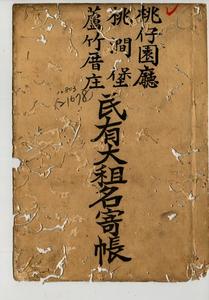 桃仔園廳
桃澗堡
蘆竹厝庄
民有大租名寄帳